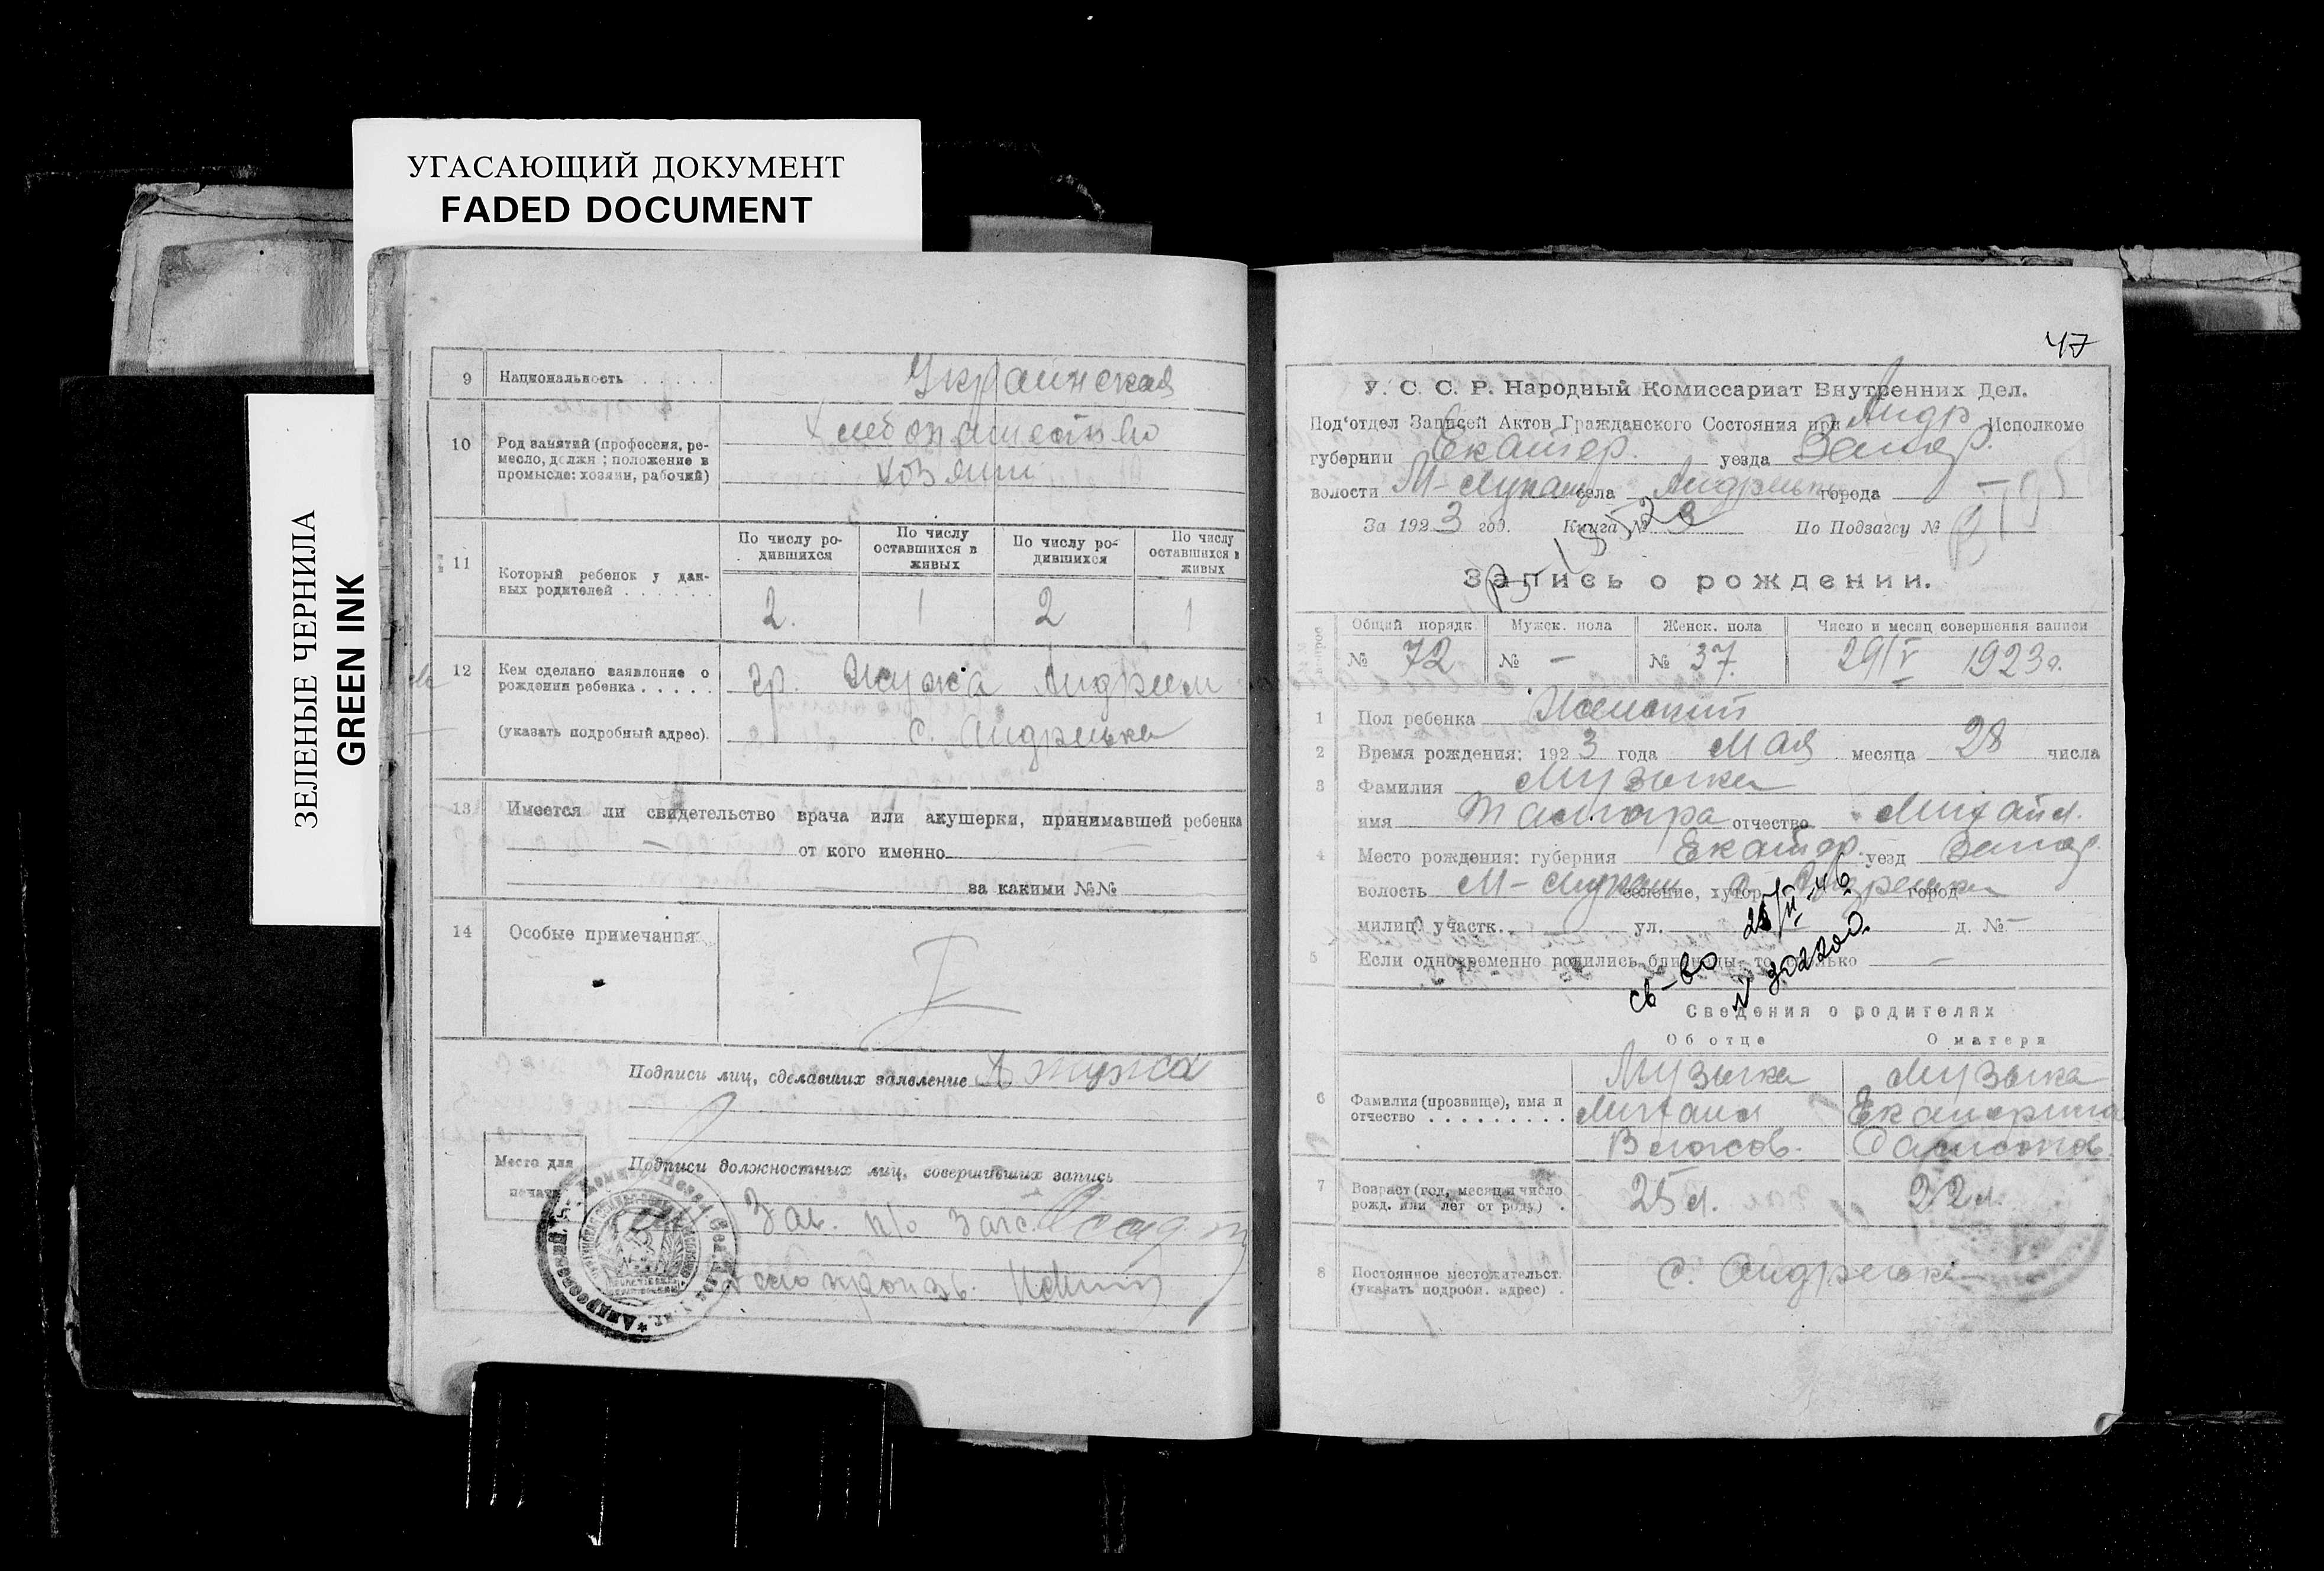 УГАСАЮЩИЙ ДОКУМЕНТ
FADED DOCUMENT
ЗЕЛЕНЫЕ ЧЕРНИЛА
GREEN INK
9 Национальность . . . . . . Украинская
10 Род занятий (профессия, ре-
месло, должн; положение в
промысле: хозяин, рабочий)
Хлебопашество
хозяин
11 Который ребенок у дан-
ных родителей . . . . . . .
По числу ро-
дившихся
По числу
оставшихся в
живых
По числу ро-
дившихся
По числу
оставшихся в
живых
2. 1 2 1
12 Кем сделано заявление о
рождения ребенка . . . . .
(указать подробный адрес).
гр. Андрей
с. Андреевка
13 Имеется ли свидетельство врача или акушерки, принимавшей ребенка
— от кого именно
за какими №№
14 Особые примечания
Подписи лиц, сделавших заявление
Место для
печати
Подписи должностных лиц, совершивших запись
Зав. п/о Загс.
Делопроизв.
47
У. С. С. Р. Народный Комиссариат Внутренних Дел.
Под'отдел Записей Актов Гражданского Состояния при Андр Исполкоме
губернии Екатер. уезда Запор.
волости М-Лукаш села Андреевки города —
За 1923 год. Книга № По Подзагсу №
Запись о рождении.
Общий порядк. Мужск. пола Женск. пола Число и месяц совершения записи
№ 72 № — № 37. 29/V 1923г.
1 Пол ребенка Женский
2 Время рождения: 1923 года Мая месяца 28 числа
3 Фамилия Музыка
имя Тамара отчество Михайл.
4 Место рождения: губерния Екатер. уезд Запор.
волость М-Лукаш селение, хутор с. Андреевка город
милиц. участк. ул. д. № —
5 Если одновременно родились близнецы, то сколько —
св-во № 302200.
Сведения о родителях
Об отце О матери
6 Фамилия (прозвище), имя и
отчество . . . . . . . . .
Музыка
Михаил
Музыка
Екатерина
7 Возраст (год, месяц и число
рожд. или лет от роду) .
25 л. 22 л.
8 Постоянное местожительст.
(указать подробн. адрес) .
с. Андреевка